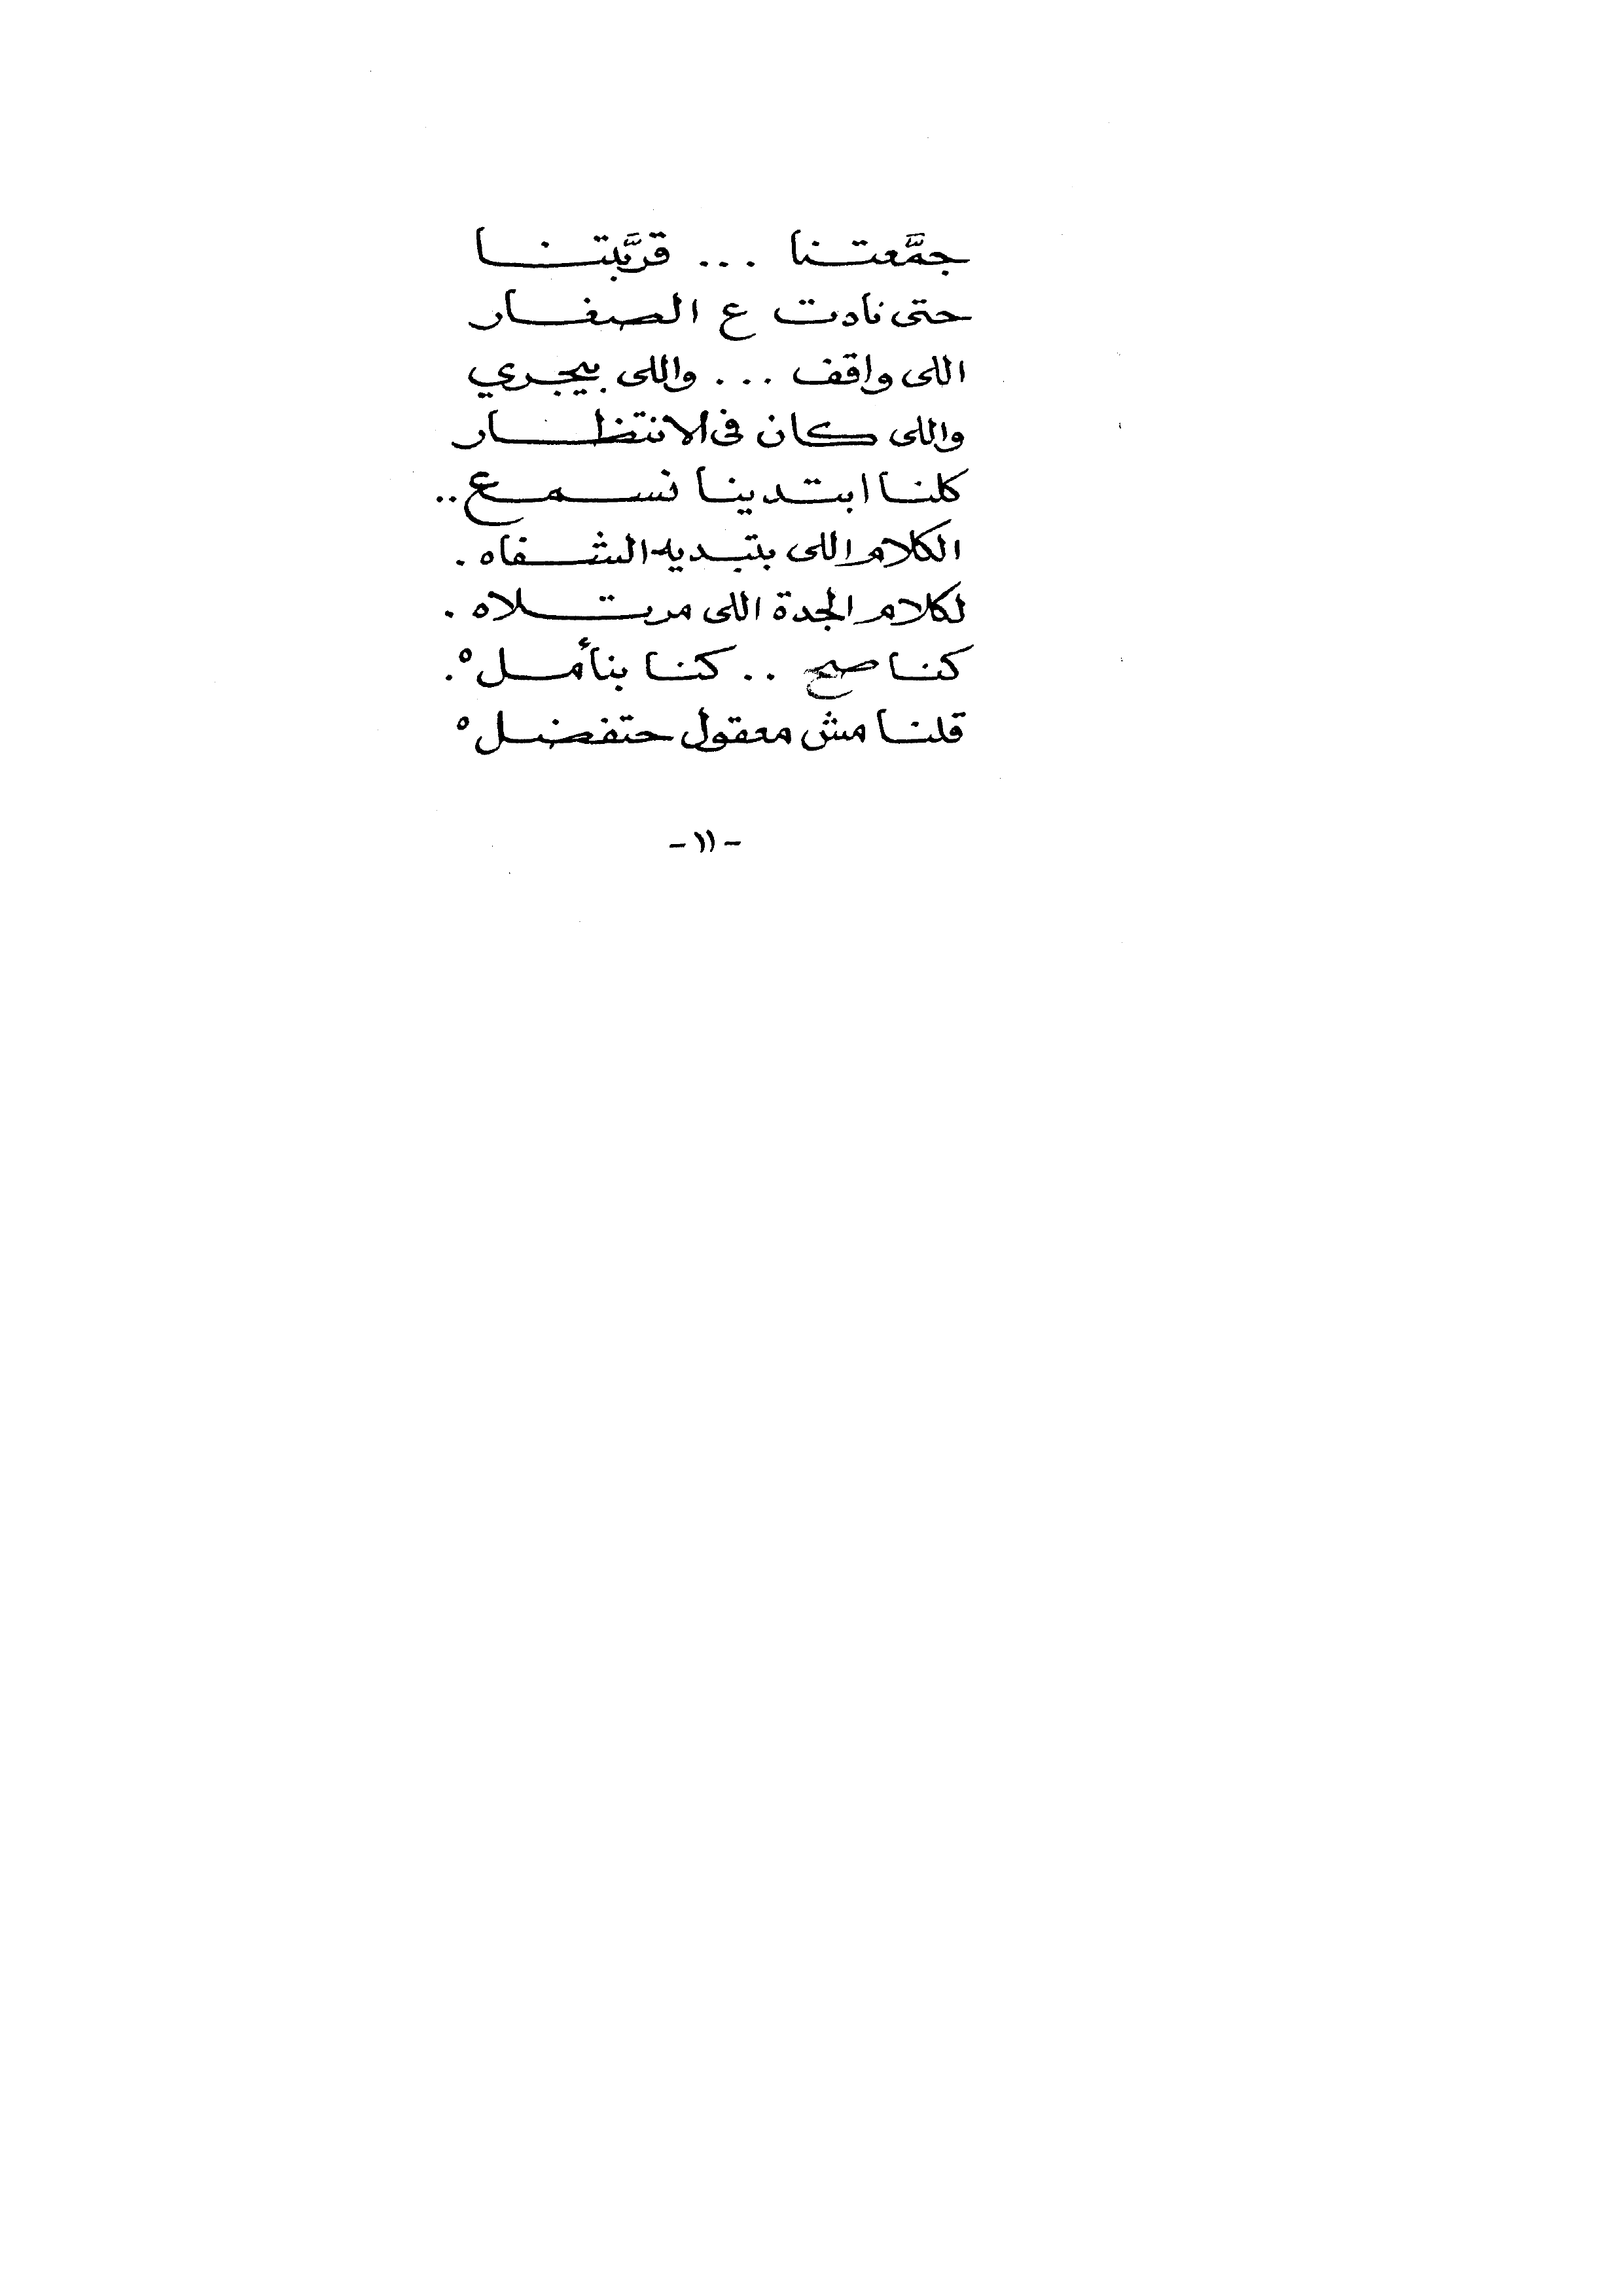 جمَّعتنا ... قربَّتنا
حتى نادت ع الصغار
اللى واقف ... واللى بيجري
واللى كان فى الانتظار
كلنا ابتدينا نسمع ..
الكلام اللى بتبديه الشفاه .
لكلام الجدة اللى مرتلاه .
كنا صح .. كنا بنأملْ .
قلنا مش معقول حتفضلْ
- ١١ -